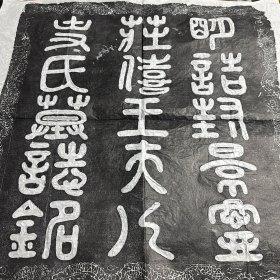 明誥封景寧
莊僖王夫人
氏墓誌銘